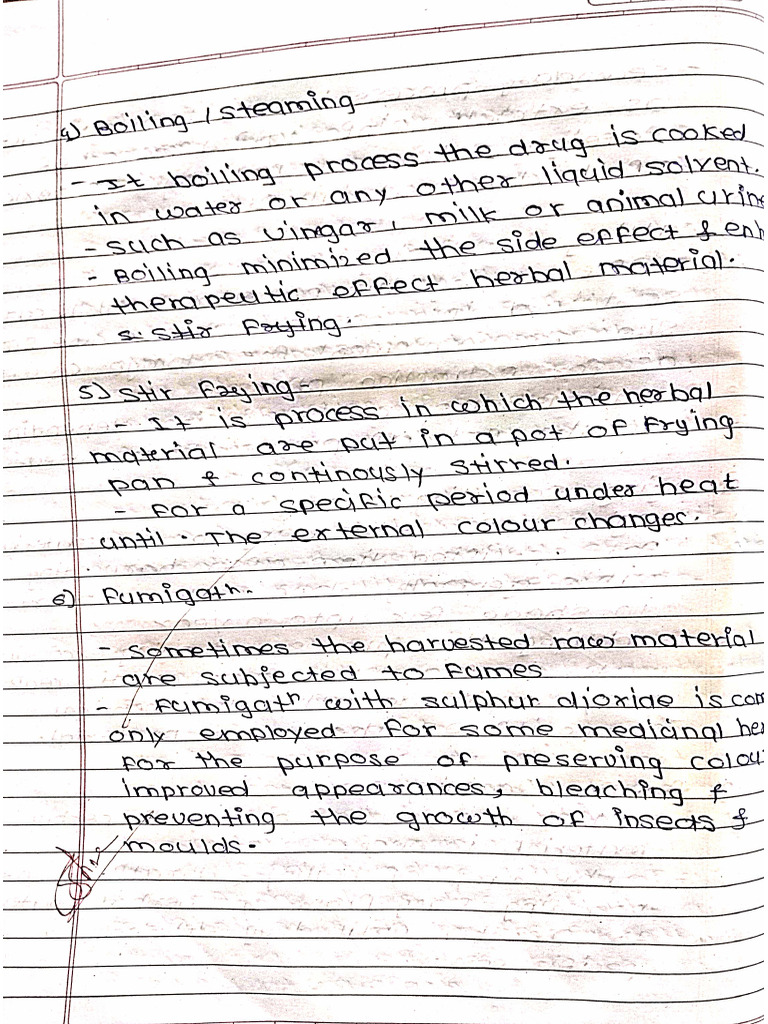 4) Boiling / Steaming
- It boiling process the drug is cooked
in water or any other liquid solvent.
- such as vinigar, milk or animal urine
- Boiling minimized the side effect & enh
therapeutic effect herbal material.
5. Stir Frying.
5) Stir Frying -
- It is process in which the herbal
material are put in a pot of Frying
pan & continously stirred.
- For a specific period under heat
until. The external colour changes.
6) Fumigatn.
- Sometimes the harvested raw material
are subjected to Fumes
- Fumigatn with sulphur dioxide is com
only employed For some medicinal her
For the purpose of preserving colou
improved appearances, bleaching &
preventing the growth of insects &
moulds.